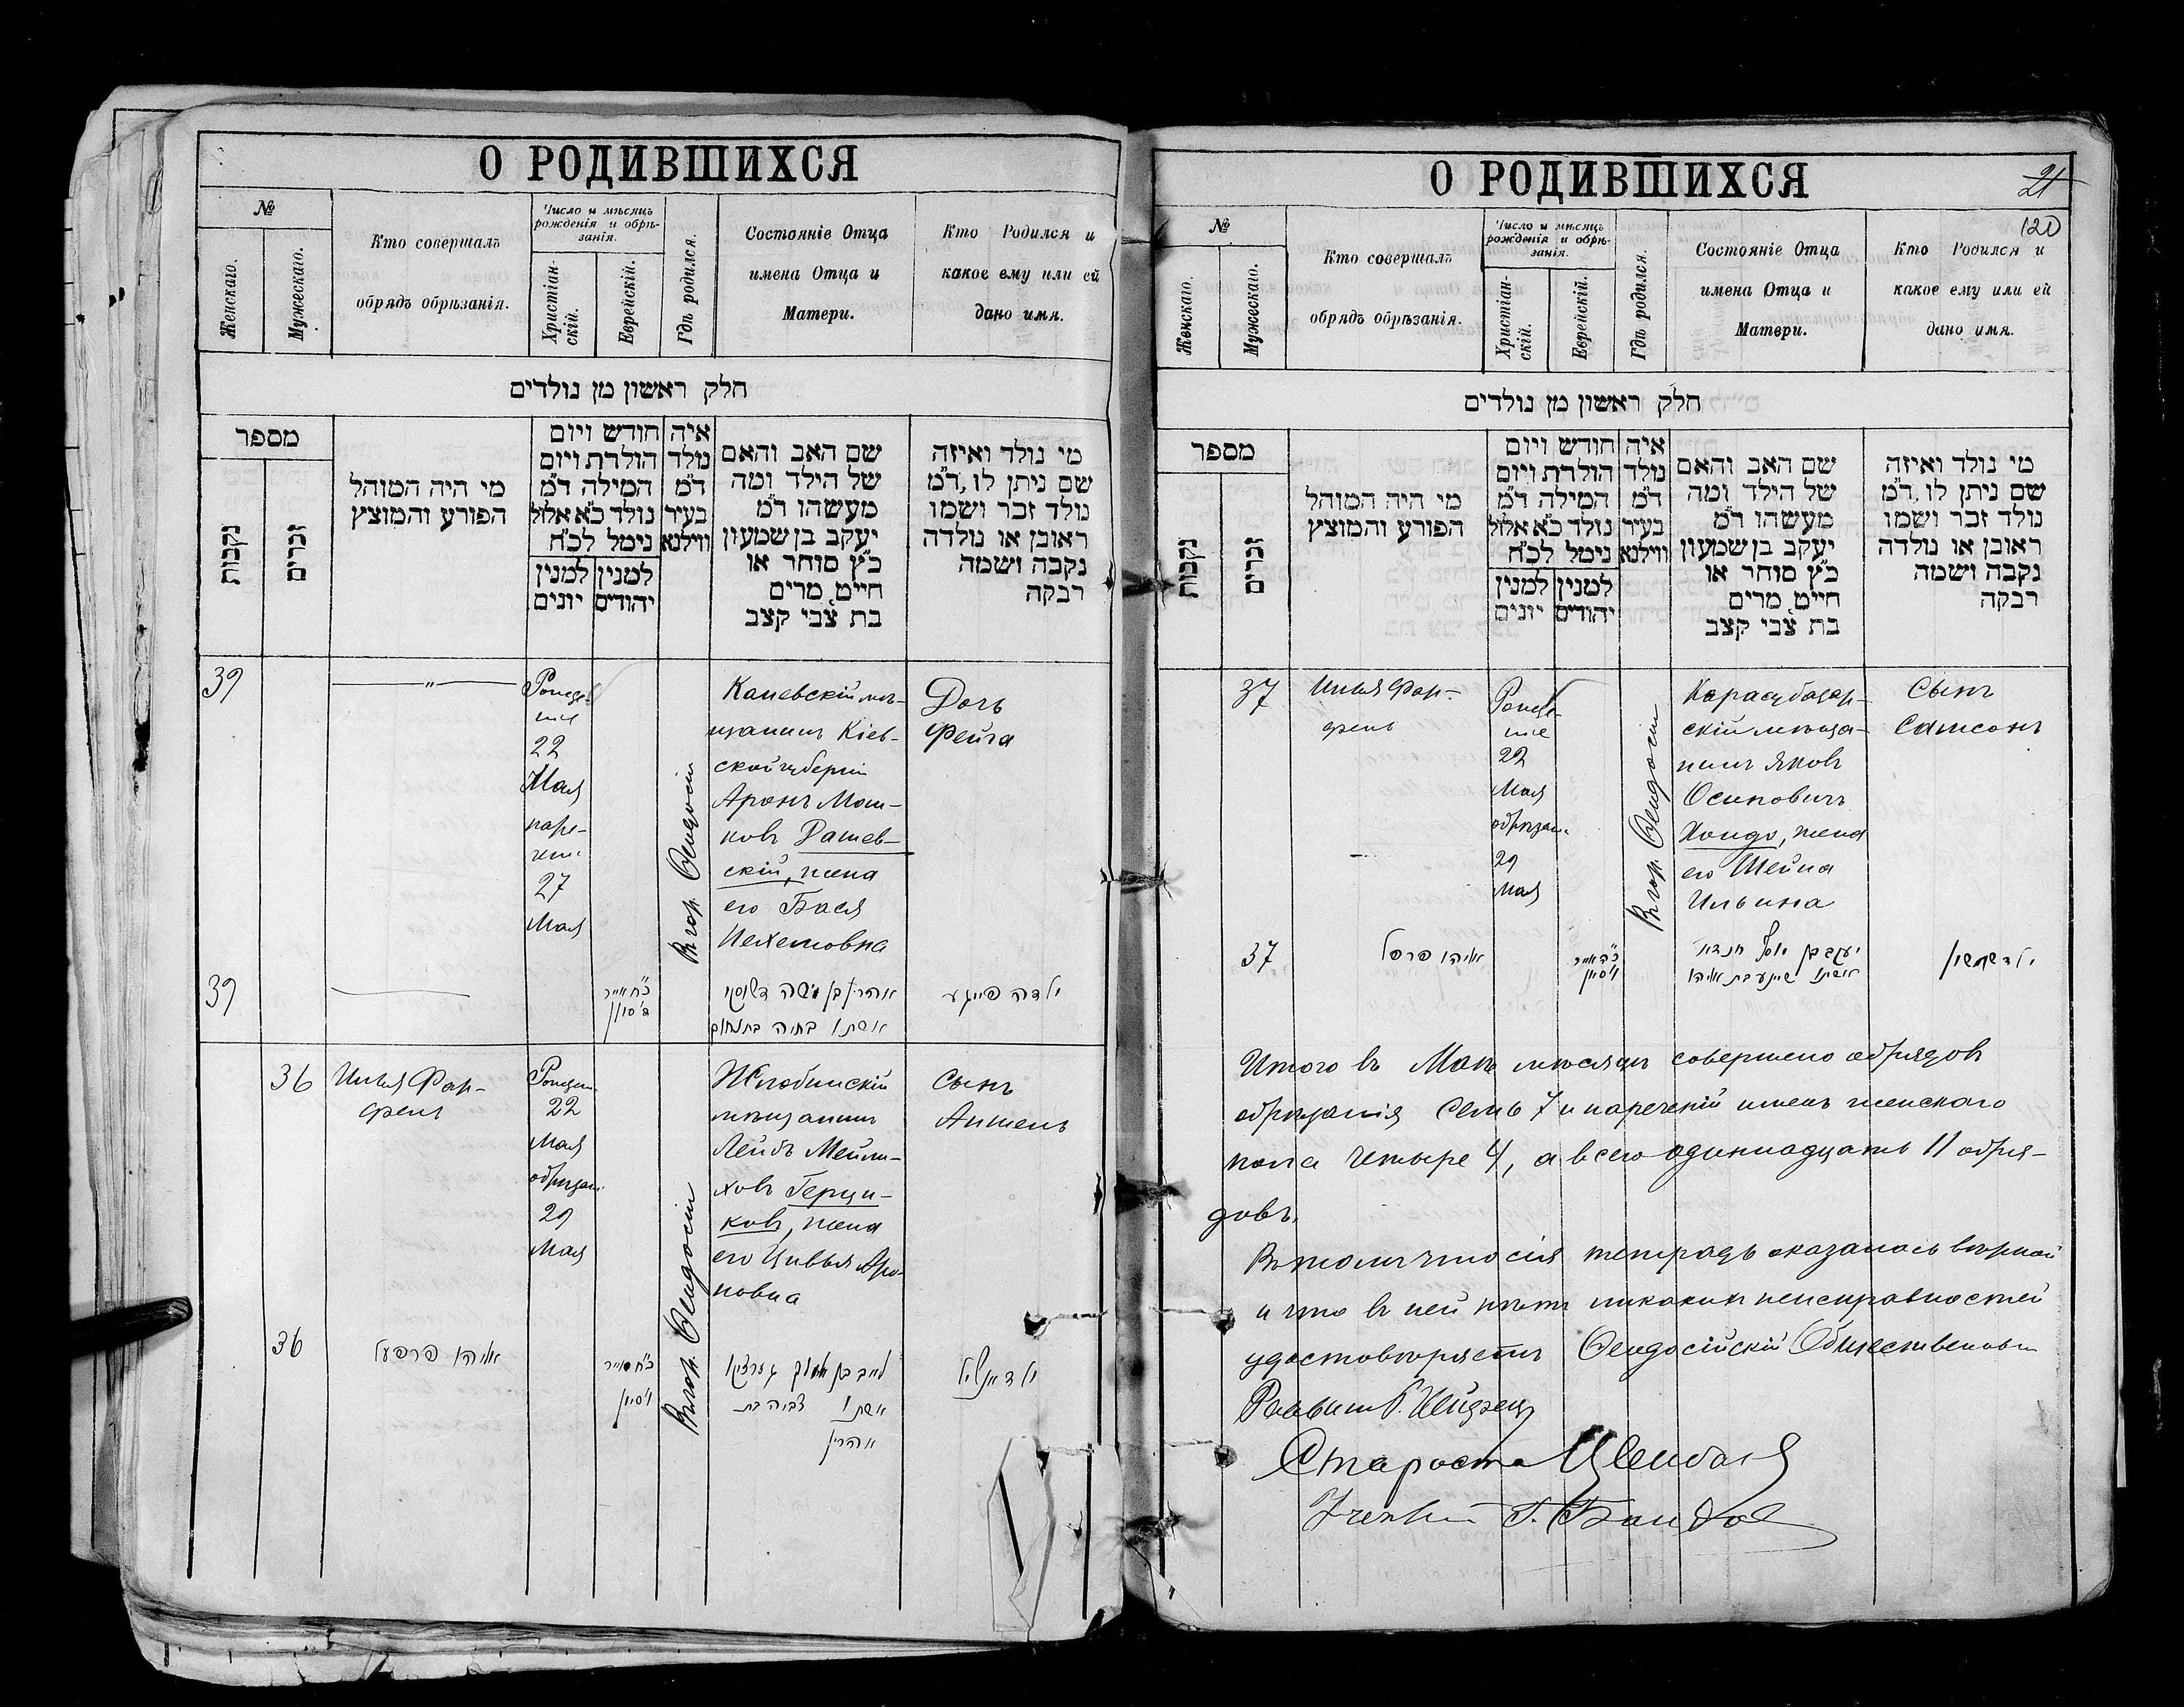 О РОДИВШИХСЯ
№
Женскаго.
Мужескаго.
Кто совершалъ
обрядъ обрѣзанія.
Число и мѣсяцъ
рожденія и обрѣ-
занія.
Христіан-
скій.
Еврейскій.
Гдѣ родился.
Состояніе Отца
имена Отца и
Матери.
Кто Родился и
какое ему или ей
дано имя.
חלק ראשון מן נולדים
מספר
נקבות
זכרים
מי היה המוהל
הפורע והמוצץ
חודש ויום
הולדת ויום
המילה ד״מ
נולד כ״א אלול
נימל לכ״ח
למנין
יהודים
למנין
יונים
איה
נולד
ד״מ
בעיר
ווילנא
שם האב והאם
של הילד ומה
מעשהו ד״מ
יעקב בן שמעון
כ״ץ סוחר או
חייט מרים
בת צבי קצב
מי נולד ואיזה
שם ניתן לו ד״מ
נולד זכר ושמו
ראובן או נולדה
נקבה ושמה
רבקה
39
22
Мая
наре-
27
Мая
В гор. Ѳеодосіи
Каневскій мѣ-
щанинъ Кіев-
ской губерніи
Аронъ Мош-
ковъ Рашев-
скій, жена
его Бася
Дочь
Фейга
39
כ״ח אייר
ד׳ סיון
אשתו בתיה בת נחום
ילדה פייגע
36
Илья Фар-
фель
22
Мая
обрѣзан.
29
Мая
В гор. Ѳеодосіи
Жлобинскій
мѣщанинъ
Лейбъ Мейли-
ховъ Герци-
ковъ, жена
его Цивья Аро-
новна
Сынъ
Аншель
36
אליהו פרפעל
כ״ח אייר
ו׳ סיון
אשתו צביה בת
אהרן
О РОДИВШИХСЯ
21
120
№
Женскаго.
Мужескаго.
Кто совершалъ
обрядъ обрѣзанія.
Число и мѣсяцъ
рожденія и обрѣ-
занія.
Христіан-
скій.
Еврейскій.
Гдѣ родился.
Состояніе Отца
имена Отца и
Матери.
Кто Родился и
какое ему или ей
дано имя.
חלק ראשון מן נולדים
מספר
נקבות
זכרים
מי היה המוהל
הפורע והמוצץ
חודש ויום
הולדת ויום
המילה ד״מ
נולד כ״א אלול
נימל לכ״ח
למנין
יהודים
למנין
יונים
איה
נולד
ד״מ
בעיר
ווילנא
שם האב והאם
של הילד ומה
מעשהו ד״מ
יעקב בן שמעון
כ״ץ סוחר או
חייט מרים
בת צבי קצב
מי נולד ואיזה
שם ניתן לו ד״מ
נולד זכר ושמו
ראובן או נולדה
נקבה ושמה
רבקה
37
Илья Фар-
фель
22
Мая
обрѣзан.
29
Мая
В гор. Ѳеодосіи
Карасубазар-
скій мѣща-
нинъ Яковъ
Осиповичъ
Хондо, жена
его Шейна
Ильина
Сынъ
Самсонъ
37
אליהו פרפל
ו׳ סיון
יעקב בן יוסף
אשתו שיינע בת אליהו
ילד שמשון
Итого въ Маѣ мѣсяцѣ совершено обрядовъ
обрѣзанія семь 7 и нареченій именъ женскаго
пола четыре 4, а всего одиннадцать 11 обря-
довъ.
Въ томъ что сія тетрадь оказалась вѣрной
и что въ ней нѣтъ никакихъ неисправностей
удостовѣряетъ Ѳеодосійскій Общественный
Раввинъ
Староста